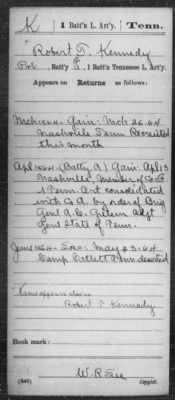 K | 1 Batt'n L. Art'y. | Tenn.
Robert T. Kennedy
Pvt., Batty E, 1 Batt'n Tennessee L. Art'y.
Appears on
Returns as follows:
Mch 1864 Gain: Mch 26-64
Nashville Tenn Recruited
this month
Apl 1864 (Batty A) Gain: Apl 13
Nashville, Member of Co
1 Tenn. Art consolidated
with Co A. by order of Brig
Genl A.C. Gillem Adjt
Genl State of Tenn.
June 1864 Loss: May 23-64
Camp Catlett Tenn deserted
Name appears also as
Robert T. Kennady
Book mark:
W. R. Lee
(646) Copyist.